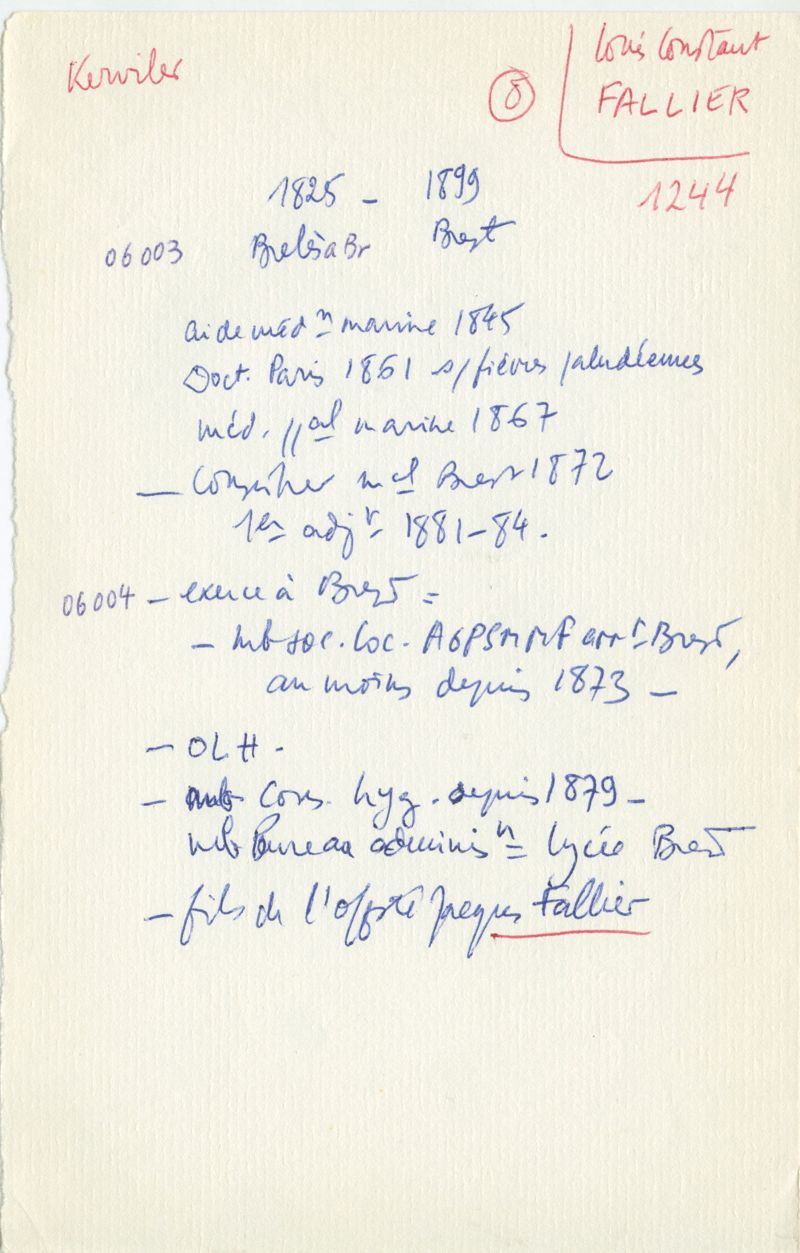 Kerviler
8
Louis Constant
FALLIER
1244
1825 - 1899
06003 Brelès a Br Brest
aide méd n marine 1845
Doct. Paris 1861 s/ fièvres paludéennes
méd. ppal marine 1867
— Conseiller mal Brest 1872
1er adjt 1881-84.
06004 — exerce à Brest =
— mb soc. loc. AGPSMMF arrt Brest,
au moins depuis 1873 —
— OLH -
— mb Cons. hyg. depuis 1879 —
mb Bureau adminis n lycée Brest
— fils de l'off Jacques Fallier